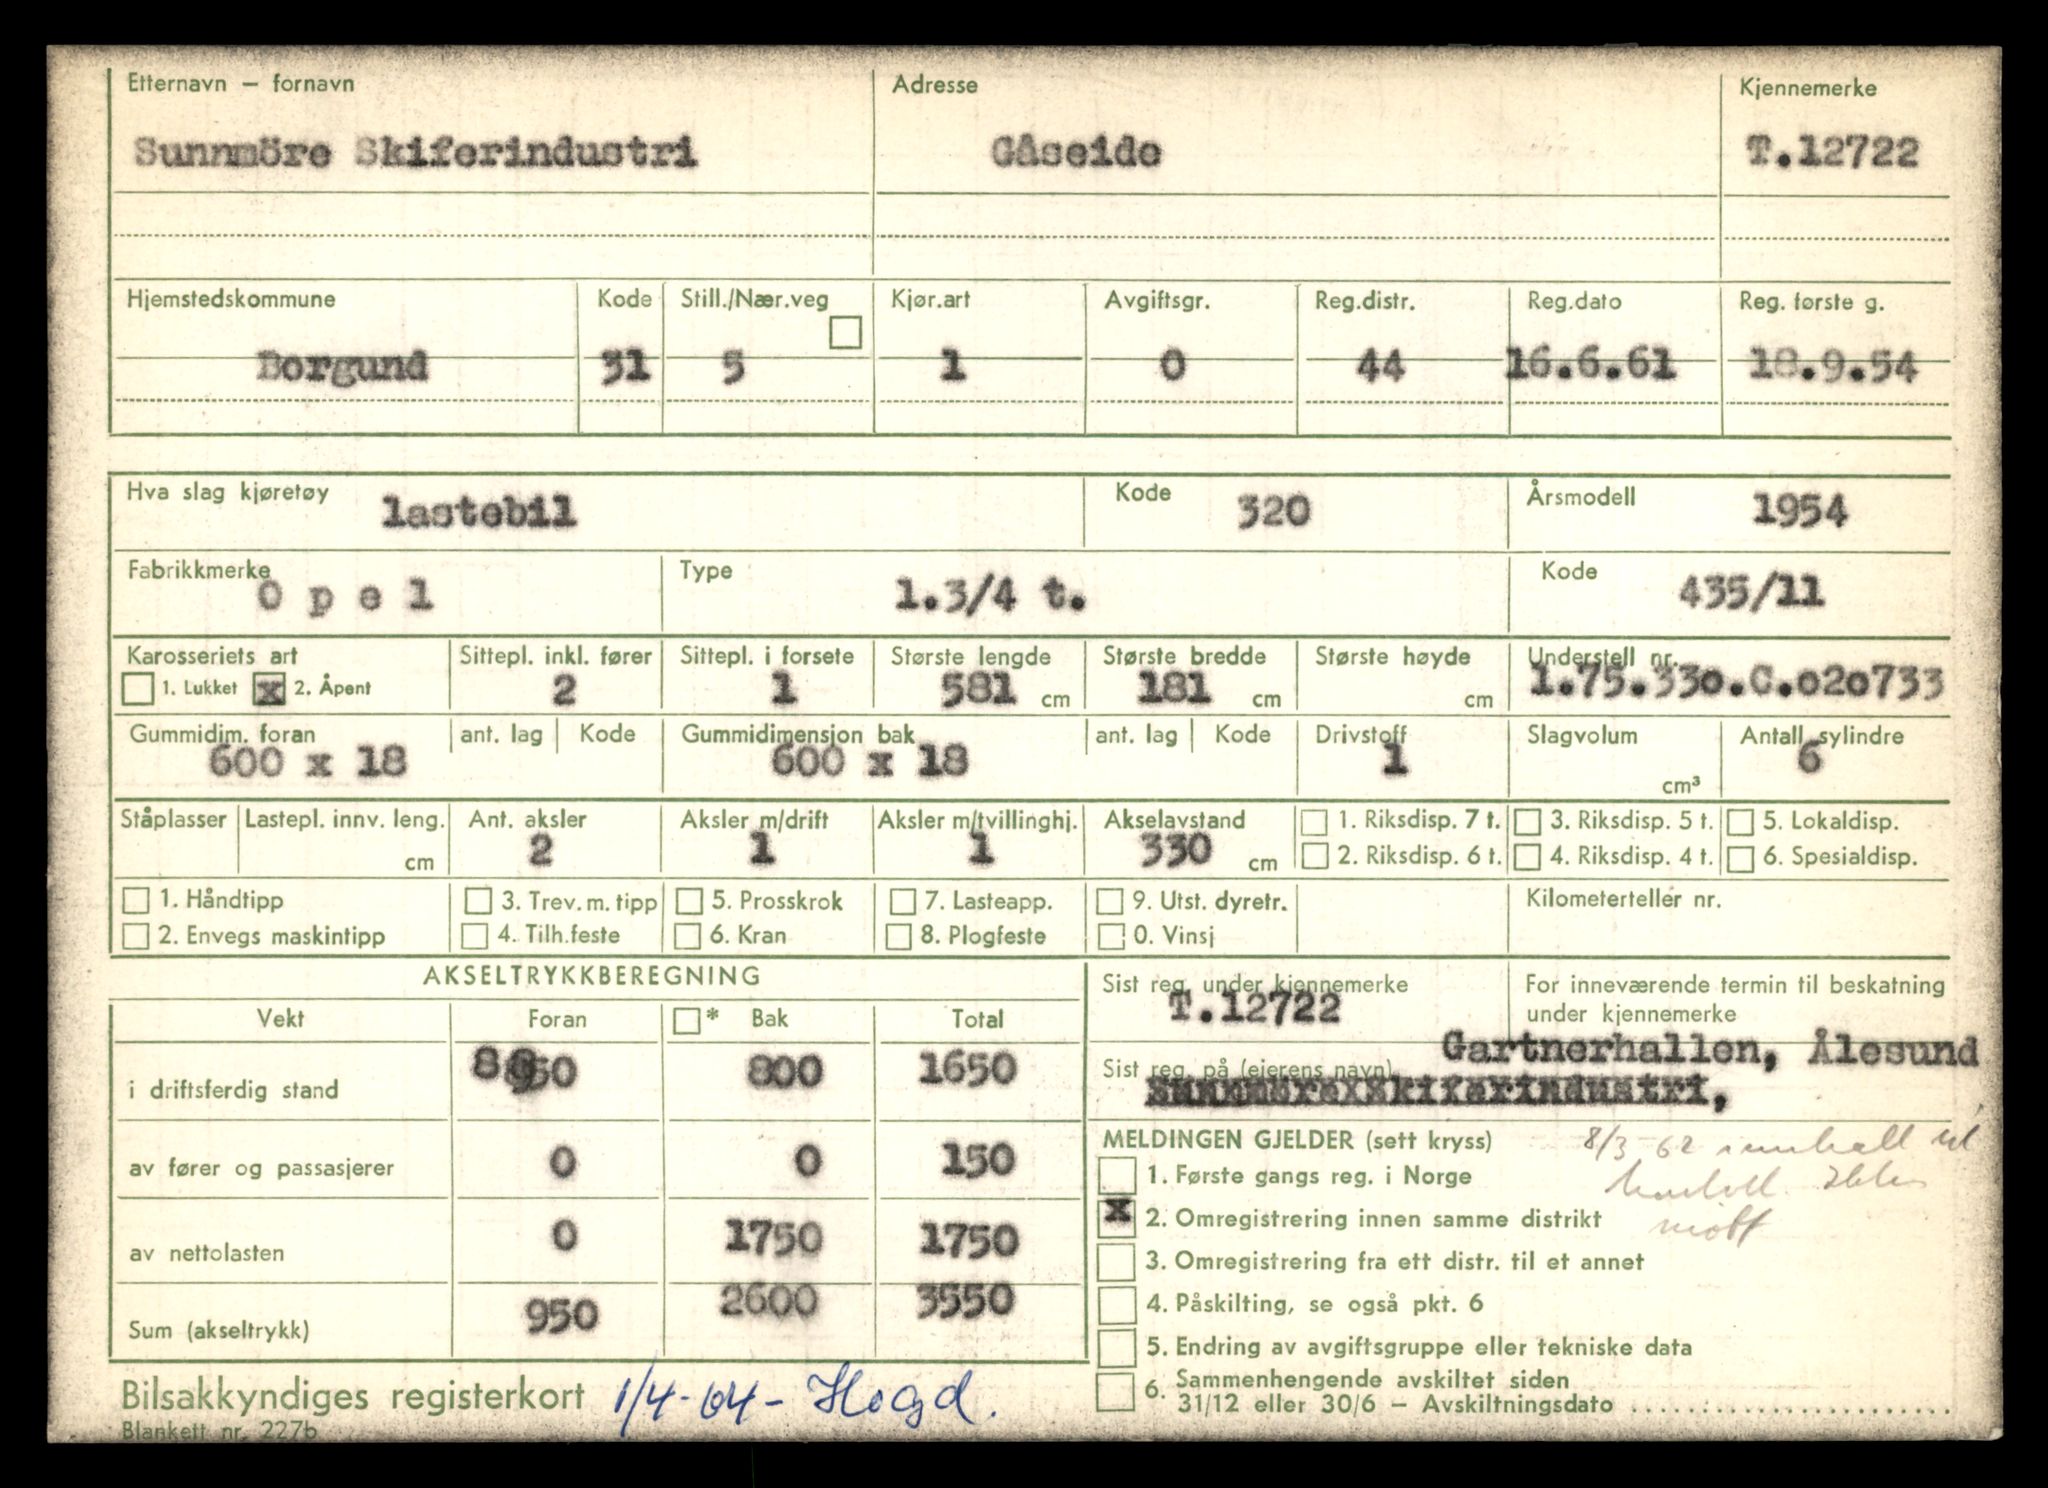 Etternavn – fornavn Adresse Kjennemerke
Sunnmöre Skiferindustri Gåseide T.12722
Hjemstedskommune Kode Still./Nær.veg Kjør.art Avgiftsgr. Reg.distr. Reg.dato Reg. første g.
Borgund 31 5 1 0 44 16.6.61 18.9.54
Hva slag kjøretøy lastebil Kode 320 Årsmodell 1954
Fabrikkmerke Opel Type 1.3/4 t. Kode 435/11
Karosseriets art Sittepl. inkl. fører Sittepl. i forsete Største lengde Største bredde Største høyde Understell nr.
1. Lukket x 2. Åpent 2 1 581 cm 181 cm cm 1.75.330.C.020733
Gummidim. foran ant. lag Kode Gummidimensjon bak ant. lag Kode Drivstoff Slagvolum Antall sylindre
600 x 18 600 x 18 1 cm³ 6
Ståplasser Lastepl. innv. leng. Ant. aksler Aksler m/drift Aksler m/tvillinghj. Akselavstand 1. Riksdisp. 7 t. 3. Riksdisp. 5 t. 5. Lokaldisp.
cm 2 1 1 330 cm 2. Riksdisp. 6 t. 4. Riksdisp. 4 t. 6. Spesialdisp.
1. Håndtipp 3. Trev. m. tipp 5. Prosskrok 7. Lasteapp. 9. Utst. dyretr. Kilometerteller nr.
2. Envegs maskintipp 4. Tilh.feste 6. Kran 8. Plogfeste 0. Vinsj
AKSELTRYKKBEREGNING
Vekt Foran * Bak Total
i driftsferdig stand 800 1650
av fører og passasjerer 0 0 150
av nettolasten 0 1750 1750
Sum (akseltrykk) 950 2600 3550
Sist reg. under kjennemerke For inneværende termin til beskatning
T.12722 under kjennemerke
Gartnerhallen, Ålesund
Sist reg. på (eierens navn)
Sunnmöre Skiferindustri,
MELDINGEN GJELDER (sett kryss) 8/3 62
1. Første gangs reg. i Norge
x 2. Omregistrering innen samme distrikt
3. Omregistrering fra ett distr. til et annet
4. Påskilting, se også pkt. 6
5. Endring av avgiftsgruppe eller tekniske data
6. Sammenhengende avskiltet siden
31/12 eller 30/6 – Avskiltningsdato
Bilsakkyndiges registerkort 1/4-64-
Blankett nr. 227b